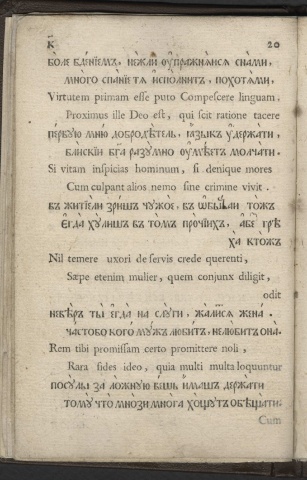 К 20
БОЛЕ БДѢНІЕМЪ, НЕЖЛИ ОУПРАЖНѦИСѦ СНАМИ,
МНОГО СПАНІЕ ТѦ ИСПОЛНИТЪ, ПОХОТѦМИ,
Virtutem primam esse puto Compescere linguam,
Proximus ille Deo est, qui scit ratione tacere
ПЕРВУЮ МНЮ ДОБРОДѢТЕЛЬ, ІАЗЫКЪ УДЕРЖАТИ,
БЛИСКІЙ БГА РАЗУМНО ОУМѢЕТЪ МОЛЧАТИ.
Si vitam inspicias hominum, si denique mores
Cum culpant alios nemo sine crimine vivit.
ВЪ ЖИТІЕЛИ ЗРИШЪ ЧУЖОЕ, ВЪ ТОЖЪ
ЕГДА ХУЛИШЪ ВЪ ТОМЪ ПРОЧІИХЪ, АБІЕ ГРѢ
ХА КТОЖЪ
Nil temere uxori de servis crede querenti,
Sæpe etenim mulier, quem conjunx diligit,
odit
НЕВѢРЪ ТЫ ЕГДА НА СЛУГИ, ЖАЛИСѦ ЖЕНА
ЧАСТОБО КОГО МУЖЪ ЛЮБИТЪ, НЕЛЮБИТЪ ОНА.
Rem tibi promissam certo promittere noli,
Rara fides ideo, quia multi multa loquuntur
ПОСУЛЫ ЗА ЛОЖНУЮ ВЕЩЬ ИМАШЪ ДЕРЖАТИ
ТОМУ ЧТО МНОЗИ МНОГА ХОЩУТЪ ОБѢЩАТИ.
Cum